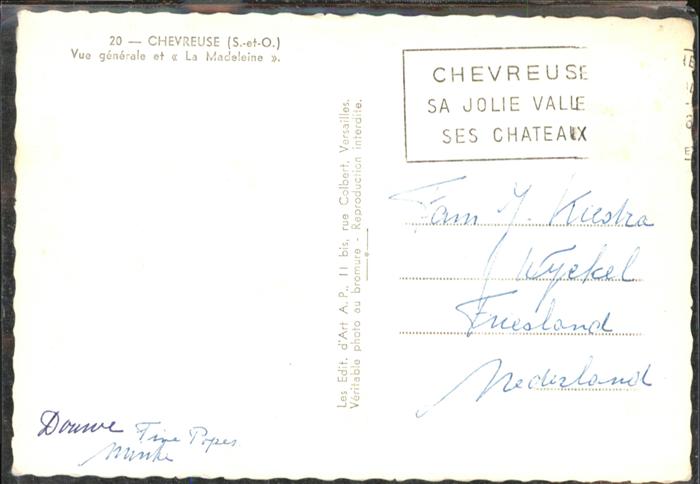 20 — CHEVREUSE (S.-et-O.)
Vue générale et « La Madeleine ».
CHEVREUSE
SA JOLIE VALLE
SES CHATEAUX
Les Edit. d'Art A. P., 11 bis, rue Colbert, Versailles.
Véritable photo au bromure - Reproduction interdite.
Fam Y. Kiestra
Wyckel
Friesland
Nederland
Douwe Tine Popes
Minke